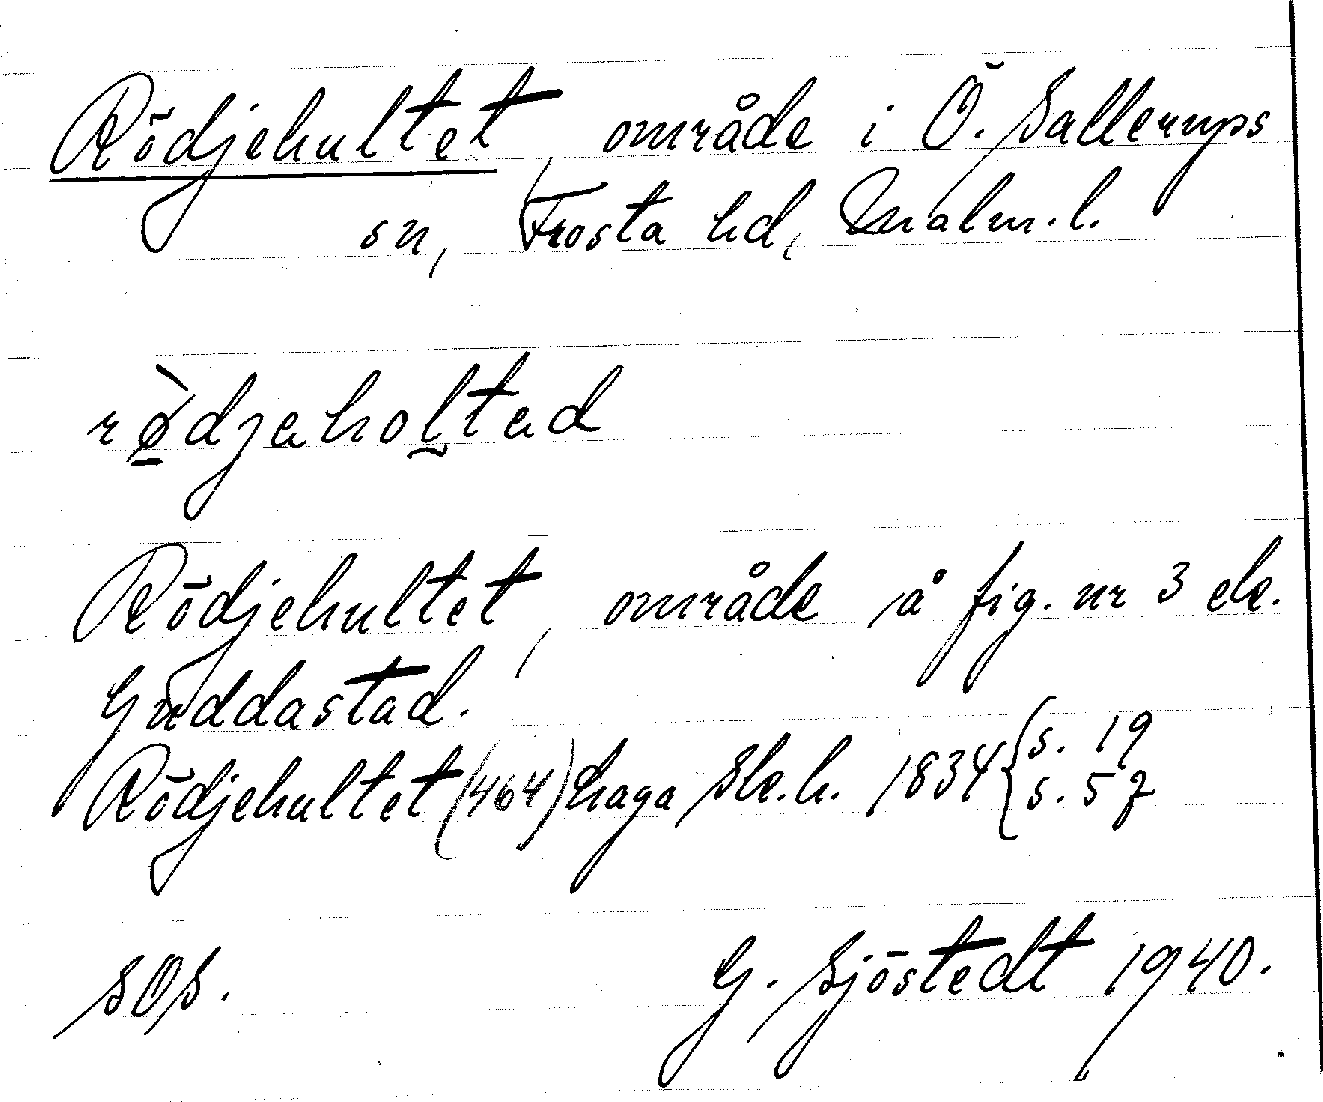 Rödjehultet, område i Ö. Sallerups
sn, Frosta hd, Malm. l.
rø̀djaholtad
Rödjehultet, område å fig. nr 3 ek.
Guddastad.
Rödjehultet (464) haga Sk.h. 1834 {s. 19
s. 57
SOS.
G. Sjöstedt 1940.